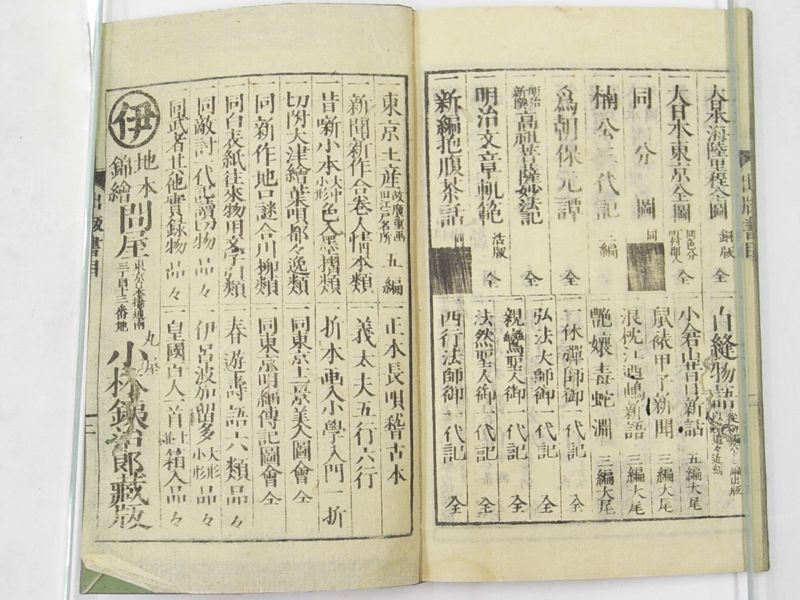 大日本海陸里程全圖 銅版 全
大日本東京全圖 同色分 明細郡入 全
同 分 圖 同
楠公三代記 三編
爲朝保元譚 全
明治新撰 高祖菩薩妙法記 全
明治文章軌範 活版 全
新編抱腹茶話 同
白縫物語
小倉山青樹新話 五編大尾
鼠裱甲子新聞 三編大尾
浪枕江の嶋新語 三編大尾
艶嬢毒蛇淵 三編大尾
一休禪師御一代記 全
弘法大師御一代記 全
親鸞聖人御一代記 全
法然聖人御一代記 全
西行法師御一代記 全
出版書目
東京土産 故廣重画 旧江戸名所 五編
新聞新作合巻人情本類
昔噺小本 大中小形 色入墨摺類
切附大津繪葉唄都々逸類
同新作地口謎合川柳類
同白表紙往來物用文字引類
同敵討一代記讀切物 品々
同武者其他實録物 品々
正本長唄稽古本
義太夫五行六行
折本画入小學入門 一折
同東京土京美人圖會 全
同東京明細傳記圖會 全
春遊壽語六類 品々
伊呂波加留多 大形小形 品々
皇國百人一首 上並 箱入品々
伊
地本錦繪問屋
東京日本橋通南三丁目十三番地
丸屋
小林銕治郎藏版
出版書目